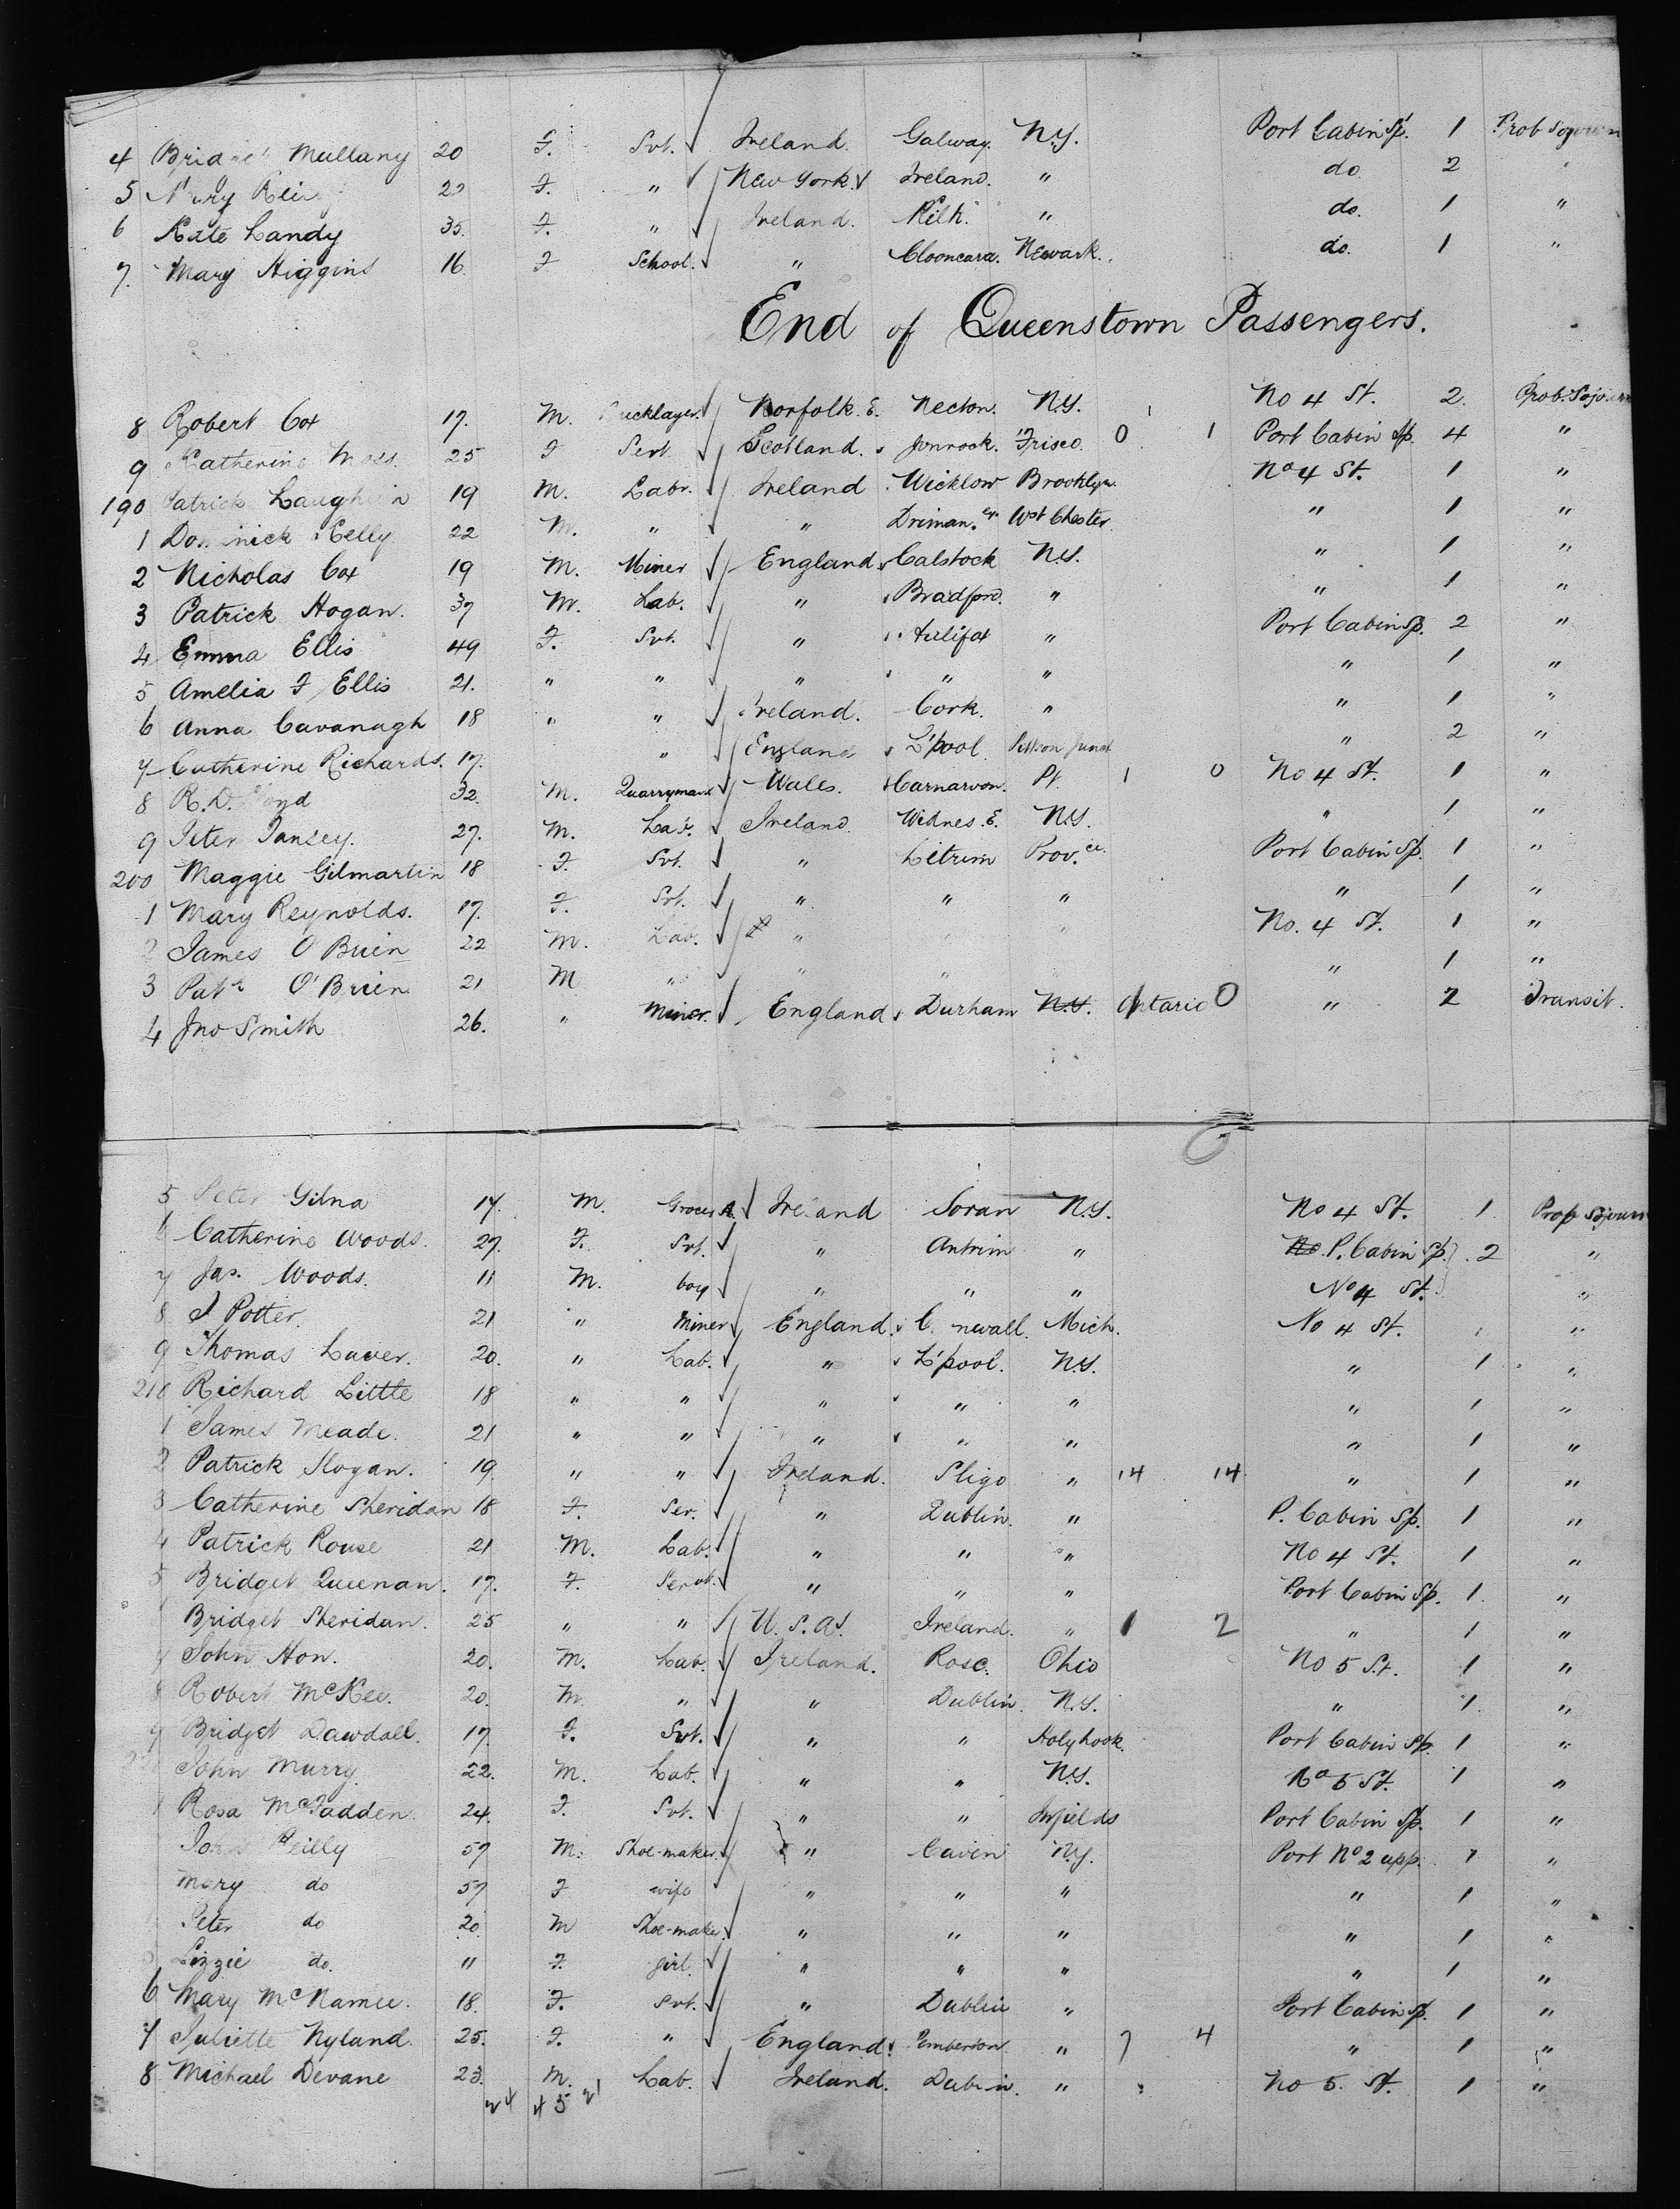 4 Mullany 20 F. Svt. Ireland. Galway. N.Y. Port Cabin Sp. 1 Prob Sojourn
5 F. " New York. Ireland. " do. 2
6 Kate Landy 35. F. " Ireland. Kilk. " do. 1 "
7. Mary Higgins 16 F School. " Clooncara. Newark. do. 1 "
End of Queenstown Passengers.
8 Robert Cox 17. M. Norfolk. E. Necton. N.Y. No 4 St. 2. Prob. Sojourn
9 Katherine 25 F Sert. Scotland. Frisco. 0 1 Port Cabin Sp. 4 "
190 Patrick 19 M. Labr. Ireland Wicklow Brooklyn. No 4 St. 1 "
1 Kelly 22 M. " " Wst Chester " 1 "
2 Nicholas Cox 19 M. Miner England Calstock N.Y. " 1 "
3 Patrick Hogan. 37 M. Lab. " Bradford. " " 1 "
4 Emma Ellis 49 F. Svt. " " Port Cabin Sp. 2 "
5 Amelia F Ellis 21. " " " " " " 1 "
6 Anna Cavanagh 18 " " Ireland. Cork. " " 1 "
7 Catherine Richards. 17. " England L'pool " 2 "
8 R. D. 32. M. Quarryman Wales. Carnarvon. 1 0 No 4 St. 1 "
9 Peter 27. M. Lab. Ireland. Widnes. E. N.Y. " 1 "
200 Maggie Gilmartin 18 F. Svt. " Litrim Prov.ce Port Cabin Sp. 1 "
1 Mary Reynolds. 17. F. Svt. " " " " 1 "
2 James O'Brien 22 M. Lab. " No. 4 St. 1 "
3 Patk O'Brien 21 M " " " " 1 "
4 Jno Smith 26. " Miner. England Durham N.Y. Ontario 0 " 2 Transit.
5 Peter Gilna 17. M. Grocer A. Ireland Soran N.Y. No 4 St. 1 Prob Sojourn
6 Catherine Woods. 27. F. Svt. " Antrim " No. P. Cabin Sp. 2 "
7 Jas. Woods. 11 M. boy " " " No 4 St. "
8 J Potter. 21 " Miner England. Mich. No 4 St. "
9 Thomas Laver. 20. " Lab. " L'pool. N.Y. " 1 "
210 Richard Little 18 " " " " " " 1 "
1 James Meade. 21 " " " " " " 1 "
2 Patrick 19. " " Ireland. Sligo " 14 14 " 1 "
3 Catherine Sheridan 18 F. Ser. " Dublin. " P. Cabin Sp. 1 "
4 Patrick Rouse 21 M. Lab. " " " No 4 St. 1 "
5 Bridget Queenan. 17. F. Servt. " " " Port Cabin Sp. 1. "
Bridget Sheridan. 25 " " U.S.A. Ireland. " 1 2 " 1 "
7 John Hon. 20. M. Lab. Ireland. Rosc. Ohio No 5 St. 1 "
8 Robert McKee. 20. M. " " Dublin. N.Y. " 1. "
9 Bridget Dawdall. 17. F. Svt. " " Holyhook. Port Cabin Sp. 1 "
220 John Murry. 22. M. Lab. " " N.Y. No 5 St. 1 "
1 Rosa McFadden. 24. F. Svt. " " Port Cabin Sp. 1 "
John Reilly 57 M. Shoe-maker. " Cavin N.Y. Port No 2 upp. 1 "
Mary do 57 F wife " " " " 1 "
Peter do 20 M Shoe-maker. " " " " 1 "
Lizzie do. 11 F. girl. " " " " 1 "
6 Mary McNamee. 18. F. Svt. " Dublin " Port Cabin Sp. 1 "
7 Juliette Nyland. 25. F. " England. Pemberton. " 7 4 " 1 "
8 Michael Devane 23. M. Lab. Ireland. Dublin. " No 5. St. 1 "
24 45 21